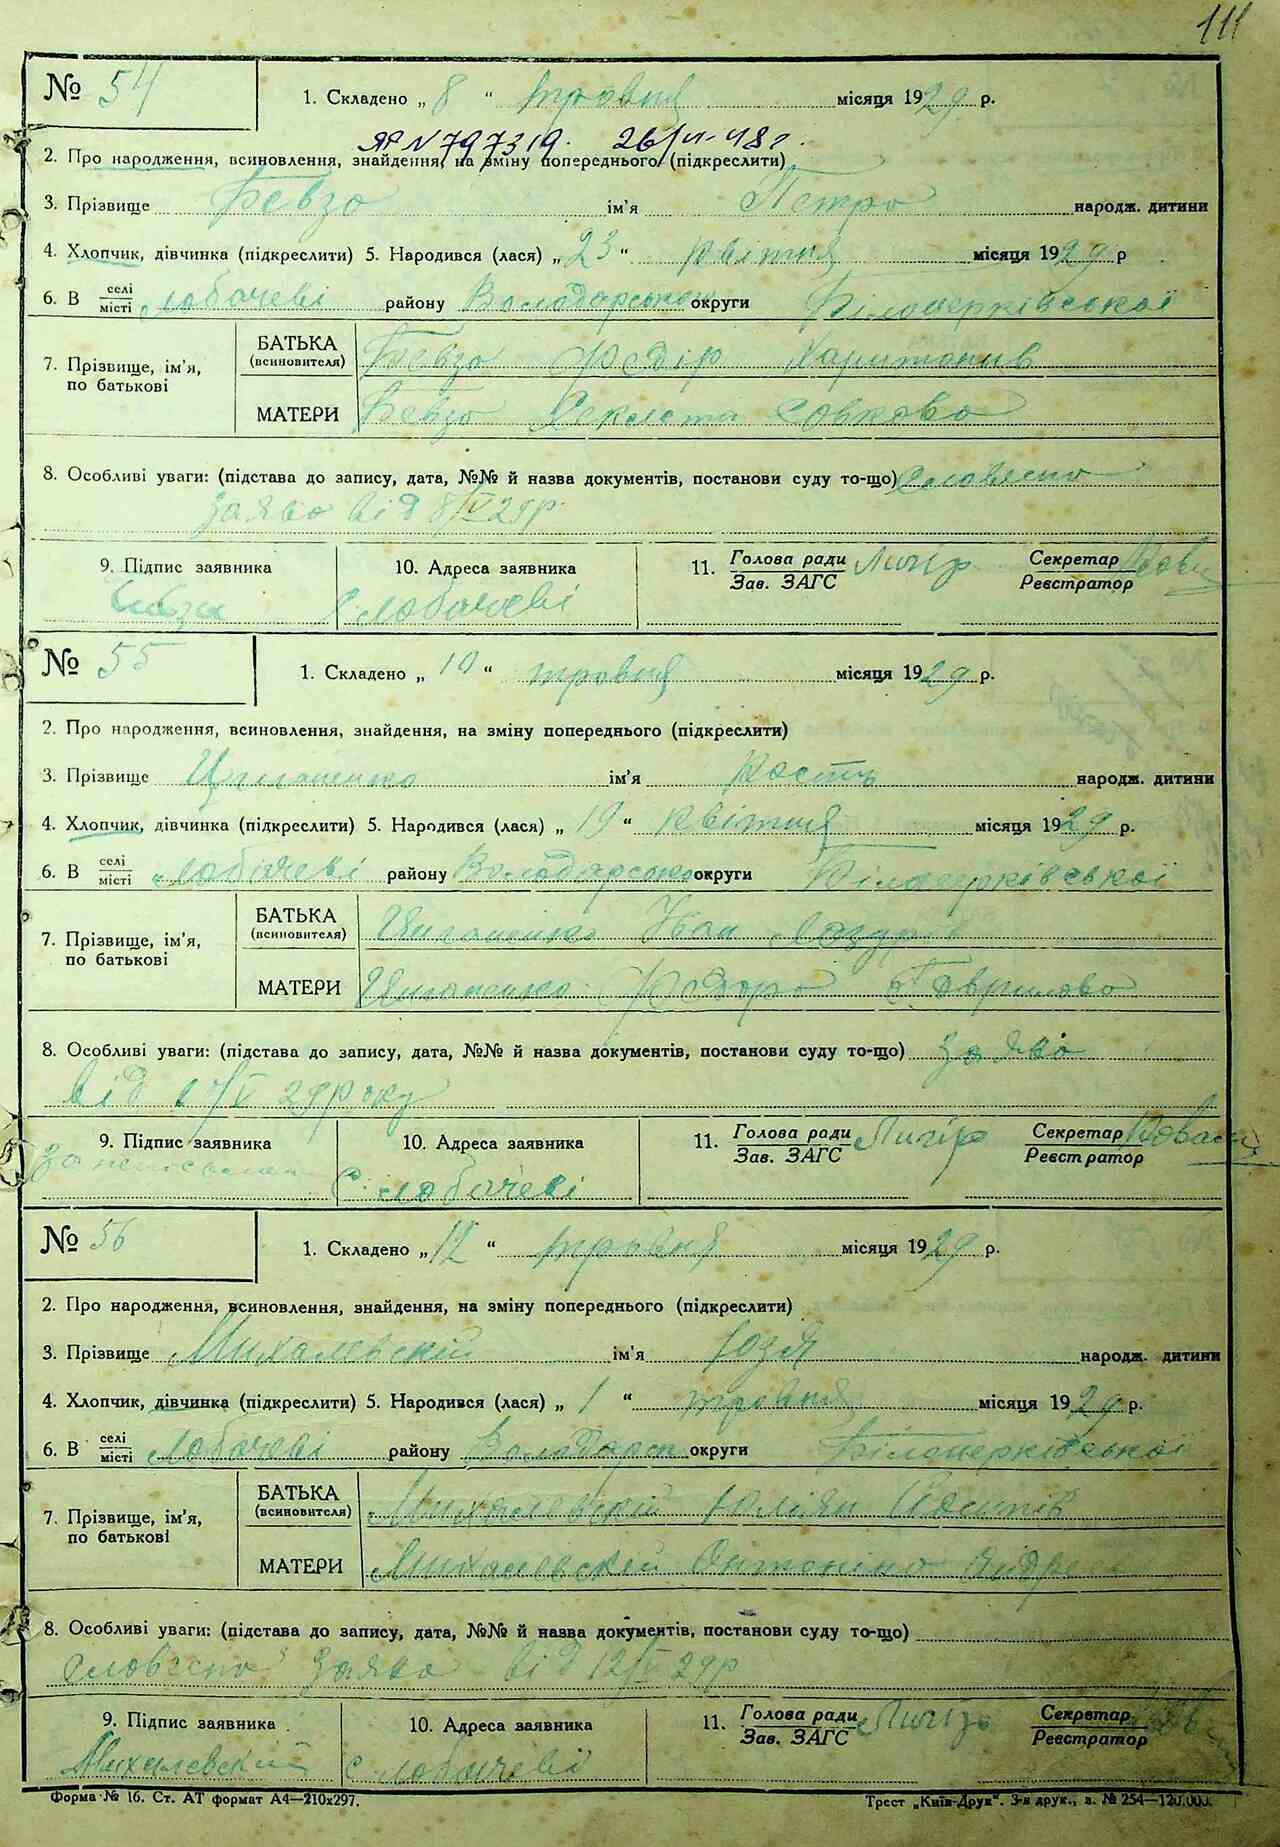 111
№ 54 1. Складено „ 8 “ травня місяця 1929 р.
ЯР N 797319. 26/VI-48г.
2. Про народження, всиновлення, знайдення, на зміну попереднього (підкреслити)
3. Прізвище Бевзо ім'я Петро народж. дитини
4. Хлопчик, дівчинка (підкреслити) 5. Народився (лася) „ 23 “ квітня місяця 1929 р
6. В селі/місті Лобачеві району Володарської округи Білоцерківської
7. Прізвище, ім'я, по батькові
БАТЬКА (всиновителя) Бевзо Федір Харитонів
МАТЕРИ Бевзо Теклета Совкова
8. Особливі уваги: (підстава до запису, дата, №№ й назва документів, постанови суду то-що) Словесно
заява від 8/V 29р.
9. Підпис заявника 10. Адреса заявника 11. Голова ради/Зав. ЗАГС Секретар/Реєстратор
с. Лобачеві
№ 55 1. Складено „ 10 “ травня місяця 1929 р.
2. Про народження, всиновлення, знайдення, на зміну попереднього (підкреслити)
3. Прізвище Циганенко ім'я Кость народж. дитини
4. Хлопчик, дівчинка (підкреслити) 5. Народився (лася) „ 19 “ квітня місяця 1929 р.
6. В селі/місті Лобачеві району Володарсько округи Білоцерківської
7. Прізвище, ім'я, по батькові
БАТЬКА (всиновителя) Циганенко Іван
МАТЕРИ Циганенко Федоро Гаврилова
8. Особливі уваги: (підстава до запису, дата, №№ й назва документів, постанови суду то-що) заява
від /V 29 року
9. Підпис заявника 10. Адреса заявника 11. Голова ради/Зав. ЗАГС Секретар/Реєстратор
за неписьмен с. Лобачеві
№ 56 1. Складено „ 12 “ травня місяця 1929 р.
2. Про народження, всиновлення, знайдення, на зміну попереднього (підкреслити)
3. Прізвище Михалевскій ім'я Юзя народж. дитини
4. Хлопчик, дівчинка (підкреслити) 5. Народився (лася) „ 1 “ травня місяця 1929 р.
6. В селі/місті Лобачеві району Володарск округи Білоцерківської
7. Прізвище, ім'я, по батькові
БАТЬКА (всиновителя) Михалевскій Юліян Йосипів
МАТЕРИ Михалевскій Онтоніно Андре
8. Особливі уваги: (підстава до запису, дата, №№ й назва документів, постанови суду то-що)
Словесно заява від 12/V 29р
9. Підпис заявника 10. Адреса заявника 11. Голова ради/Зав. ЗАГС Секретар/Реєстратор
Михалевский с. Лобачеві
Форма № 16. Ст. АТ формат А4—210x297. Трест „Київ-Друк“. 3-я друк., з. № 254—120.000.